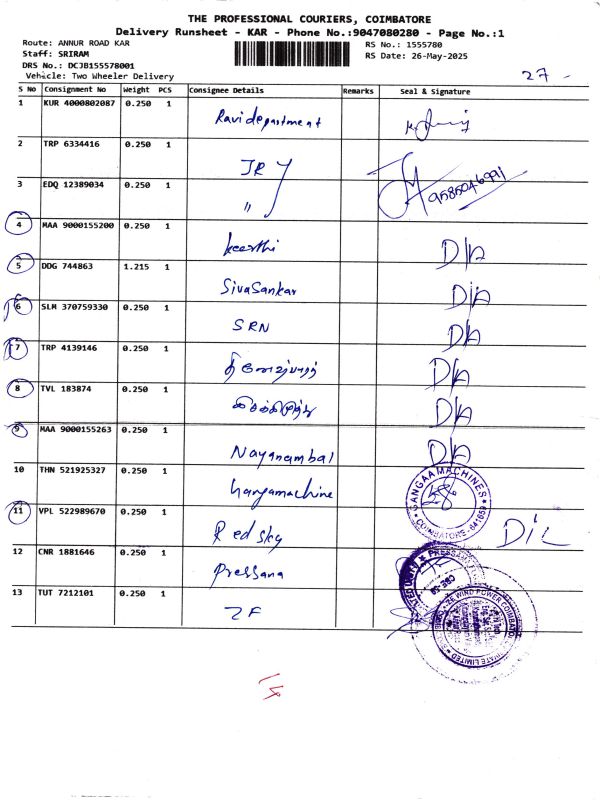 THE PROFESSIONAL COURIERS, COIMBATORE
Delivery Runsheet - KAR - Phone No.:9047080280 - Page No.:1
Route: ANNUR ROAD KAR
Staff: SRIRAM
DRS No.: DCJB155578001
Vehicle: Two Wheeler Delivery
RS No.: 1555780
RS Date: 26-May-2025
27 -
S No Consignment No Weight PCS Consignee Details Remarks Seal & Signature
1 KUR 4000802087 0.250 1 Ravi department
2 TRP 6334416 0.250 1 JR
3 EDQ 12389034 0.250 1 " 9585046991
4 MAA 9000155200 0.250 1 keerthi D/A
5 DDG 744863 1.215 1 Sivasankar D/A
6 SLM 370759330 0.250 1 SRN D/A
7 TRP 4139146 0.250 1 D/A
8 TVL 183874 0.250 1 D/A
9 MAA 9000155263 0.250 1 Nayanambal D/A
10 THN 521925327 0.250 1 Gangamachine SANGAA MACHINES COIMBATORE - 641659
11 VPL 522989670 0.250 1 Redsky D/L
12 CNR 1881646 0.250 1 Pressana
13 TUT 7212101 0.250 1 ZF